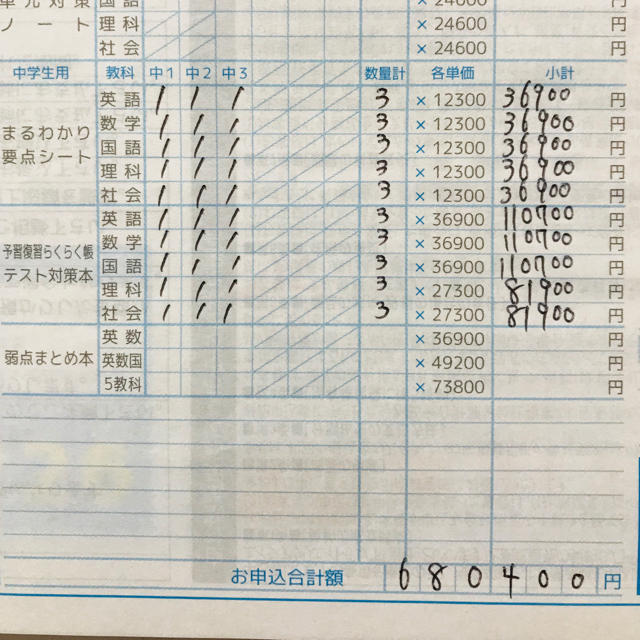 単元対策 国語 × 24600 円
ノート 理科 × 24600 円
社会 × 24600 円
中学生用 教科 中1 中2 中3 数量計 各単価 小計
英語 1 1 1 3 × 12300 36900 円
まるわかり 数学 1 1 1 3 × 12300 36900 円
要点シート 国語 1 1 1 3 × 12300 36900 円
理科 1 1 1 3 × 12300 36900 円
社会 1 1 1 3 × 12300 36900 円
英語 1 1 1 3 × 36900 110700 円
予習復習らくらく帳 数学 1 1 1 3 × 36900 110700 円
テスト対策本 国語 1 1 1 3 × 36900 110700 円
理科 1 1 1 3 × 27300 81900 円
社会 1 1 1 3 × 27300 81900 円
英数 × 36900 円
弱点まとめ本 英数国 × 49200 円
5教科 × 73800 円
お申込合計額 680400 円